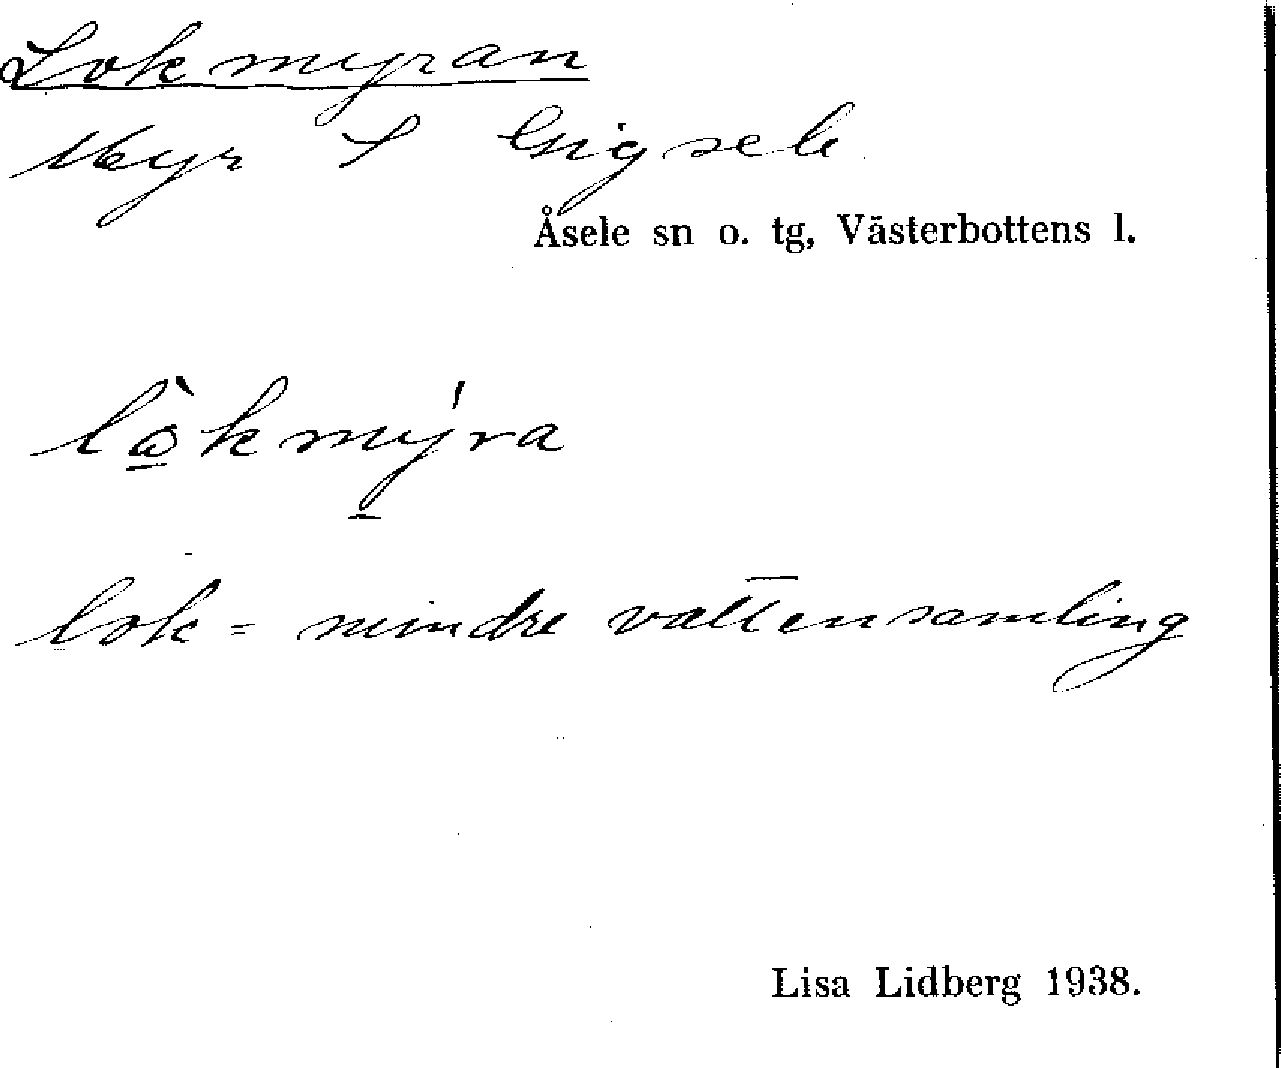 Lokmyran
Myr S Gigsele
Åsele sn o. tg, Västerbottens l.
lò̲kmý̲ra
lok = mindre vattensamling
Lisa Lidberg 1938.